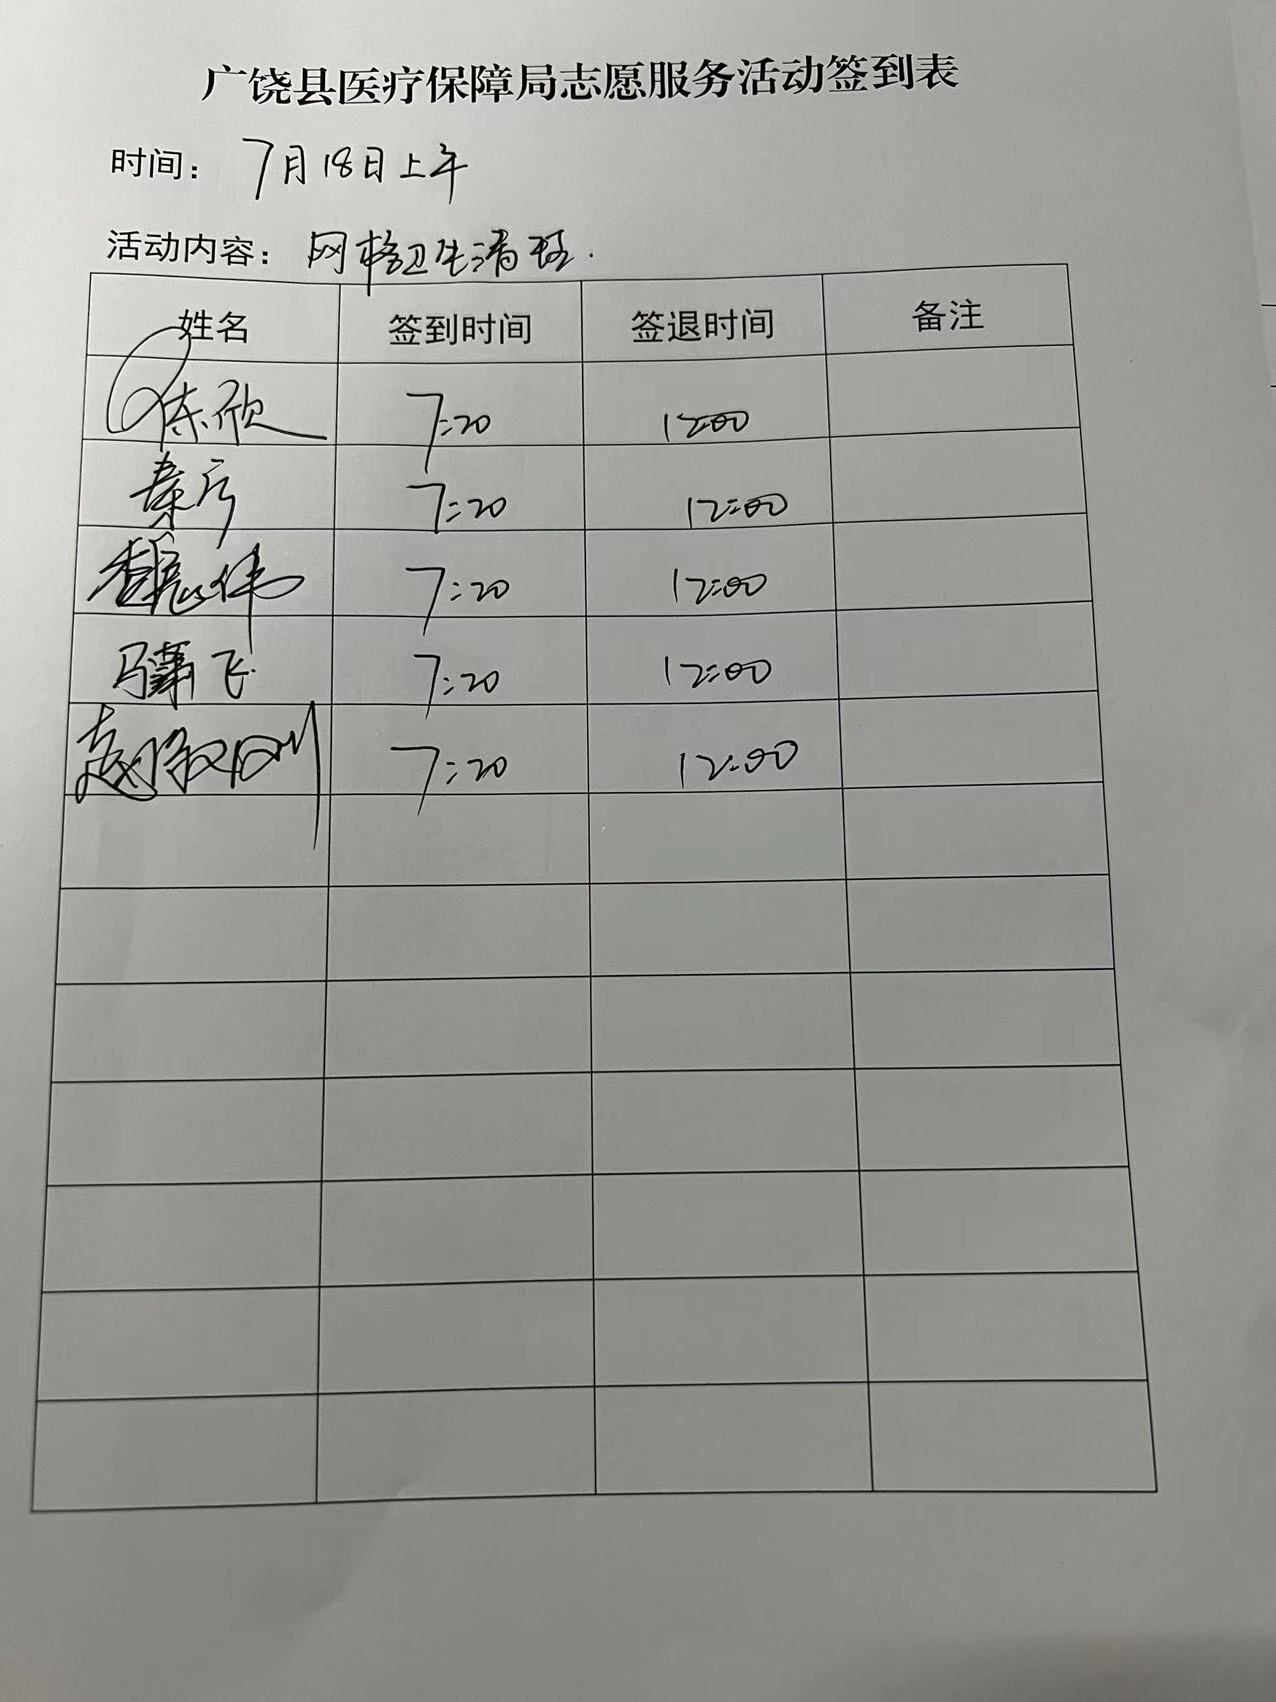 广饶县医疗保障局志愿服务活动签到表
时间： 7月18日上午
活动内容： 网格卫生清理.
姓名 签到时间 签退时间 备注
陈欣 7:20 12:00
秦序 7:20 12:00
魏伟 7:20 12:00
马萧飞 7:20 12:00
赵敬刚 7:20 12:00